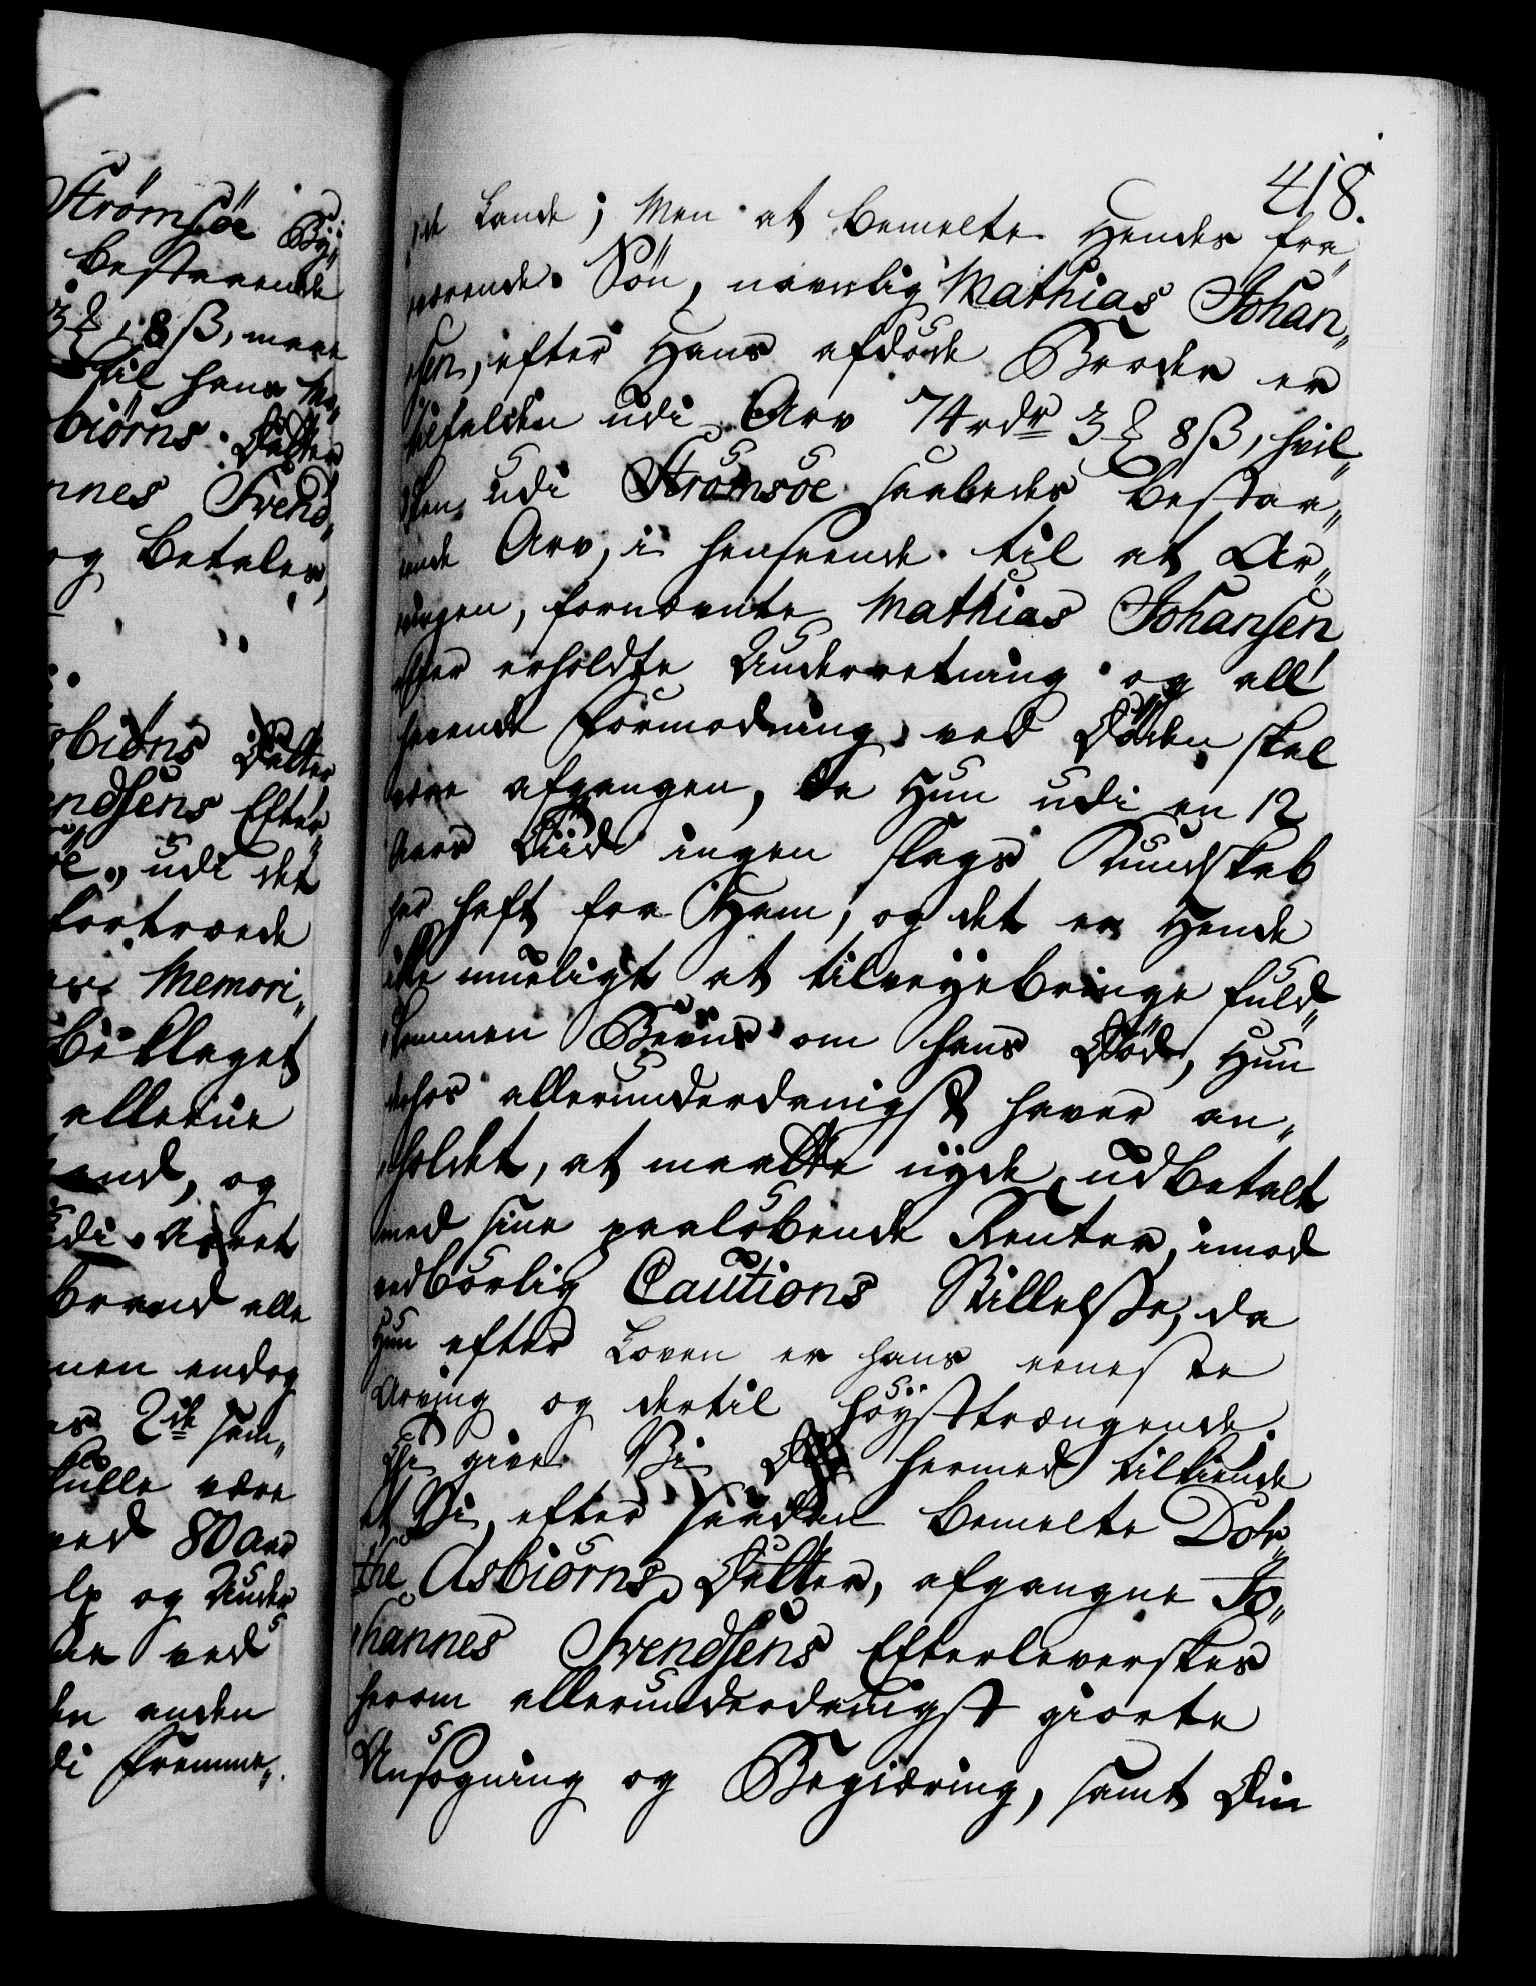 Strömsöe By,,
bestaaende
3 ℥ 8 ß, mere
til hans Mo,,
biörns Datter
nnes Svend,,
og betaler,
sbiöns Datter
endsens Efter,,
öe, udi det
fortræde
Memori,,
beklaget
alleene
and, og
udi Aaret
brænd alle
men endog
2de sam,,
skulle være
ved 80 Aar
og Under
ved
den anden
di fremme,,
418.
de Lande; Men at bemelte Hendes fra,,
værende Sön, navnlig Mathias Johan,,
sen, efter Hans afdöde Broder er
tilfalden udi Arv 74 rdr 3 ℥ 8 ß, hvil,,
ken udi Strömsöe saaledes bestaa,,
ende Arv, i henseende til at Ar,,
vingen, fornævnte Mathias Johansen
efter erholdte Underretning og all
havende Formodning, ved Döden skal
være afgangen, da Hun udi en 12
Aars Tiid ingen slags Kundskab
har haft fra Ham, og det er Hende
ikke mueligt at tilveyebringe fuld,,
kommen Beviis om hans Död, Hun
derhos allerunderdanigst haver an,,
holdet, at maatte nyde udbetalt
med sine paalöbende Renter, imod
vedbörlig Cautions Stillelsse, da
Hun efter Loven er hans eeneste
Arving og dertil höysttrængende.
Thi give Vi Dig hermed tilkiende
at Vi, efter saadan bemelte Dor,,
the Asbiörns Datter, afgangne Jo,,
hannes Svendsens Efterleverskes
herom allerunderdanigst giorte
Ansögning og Begiæring, samt Din